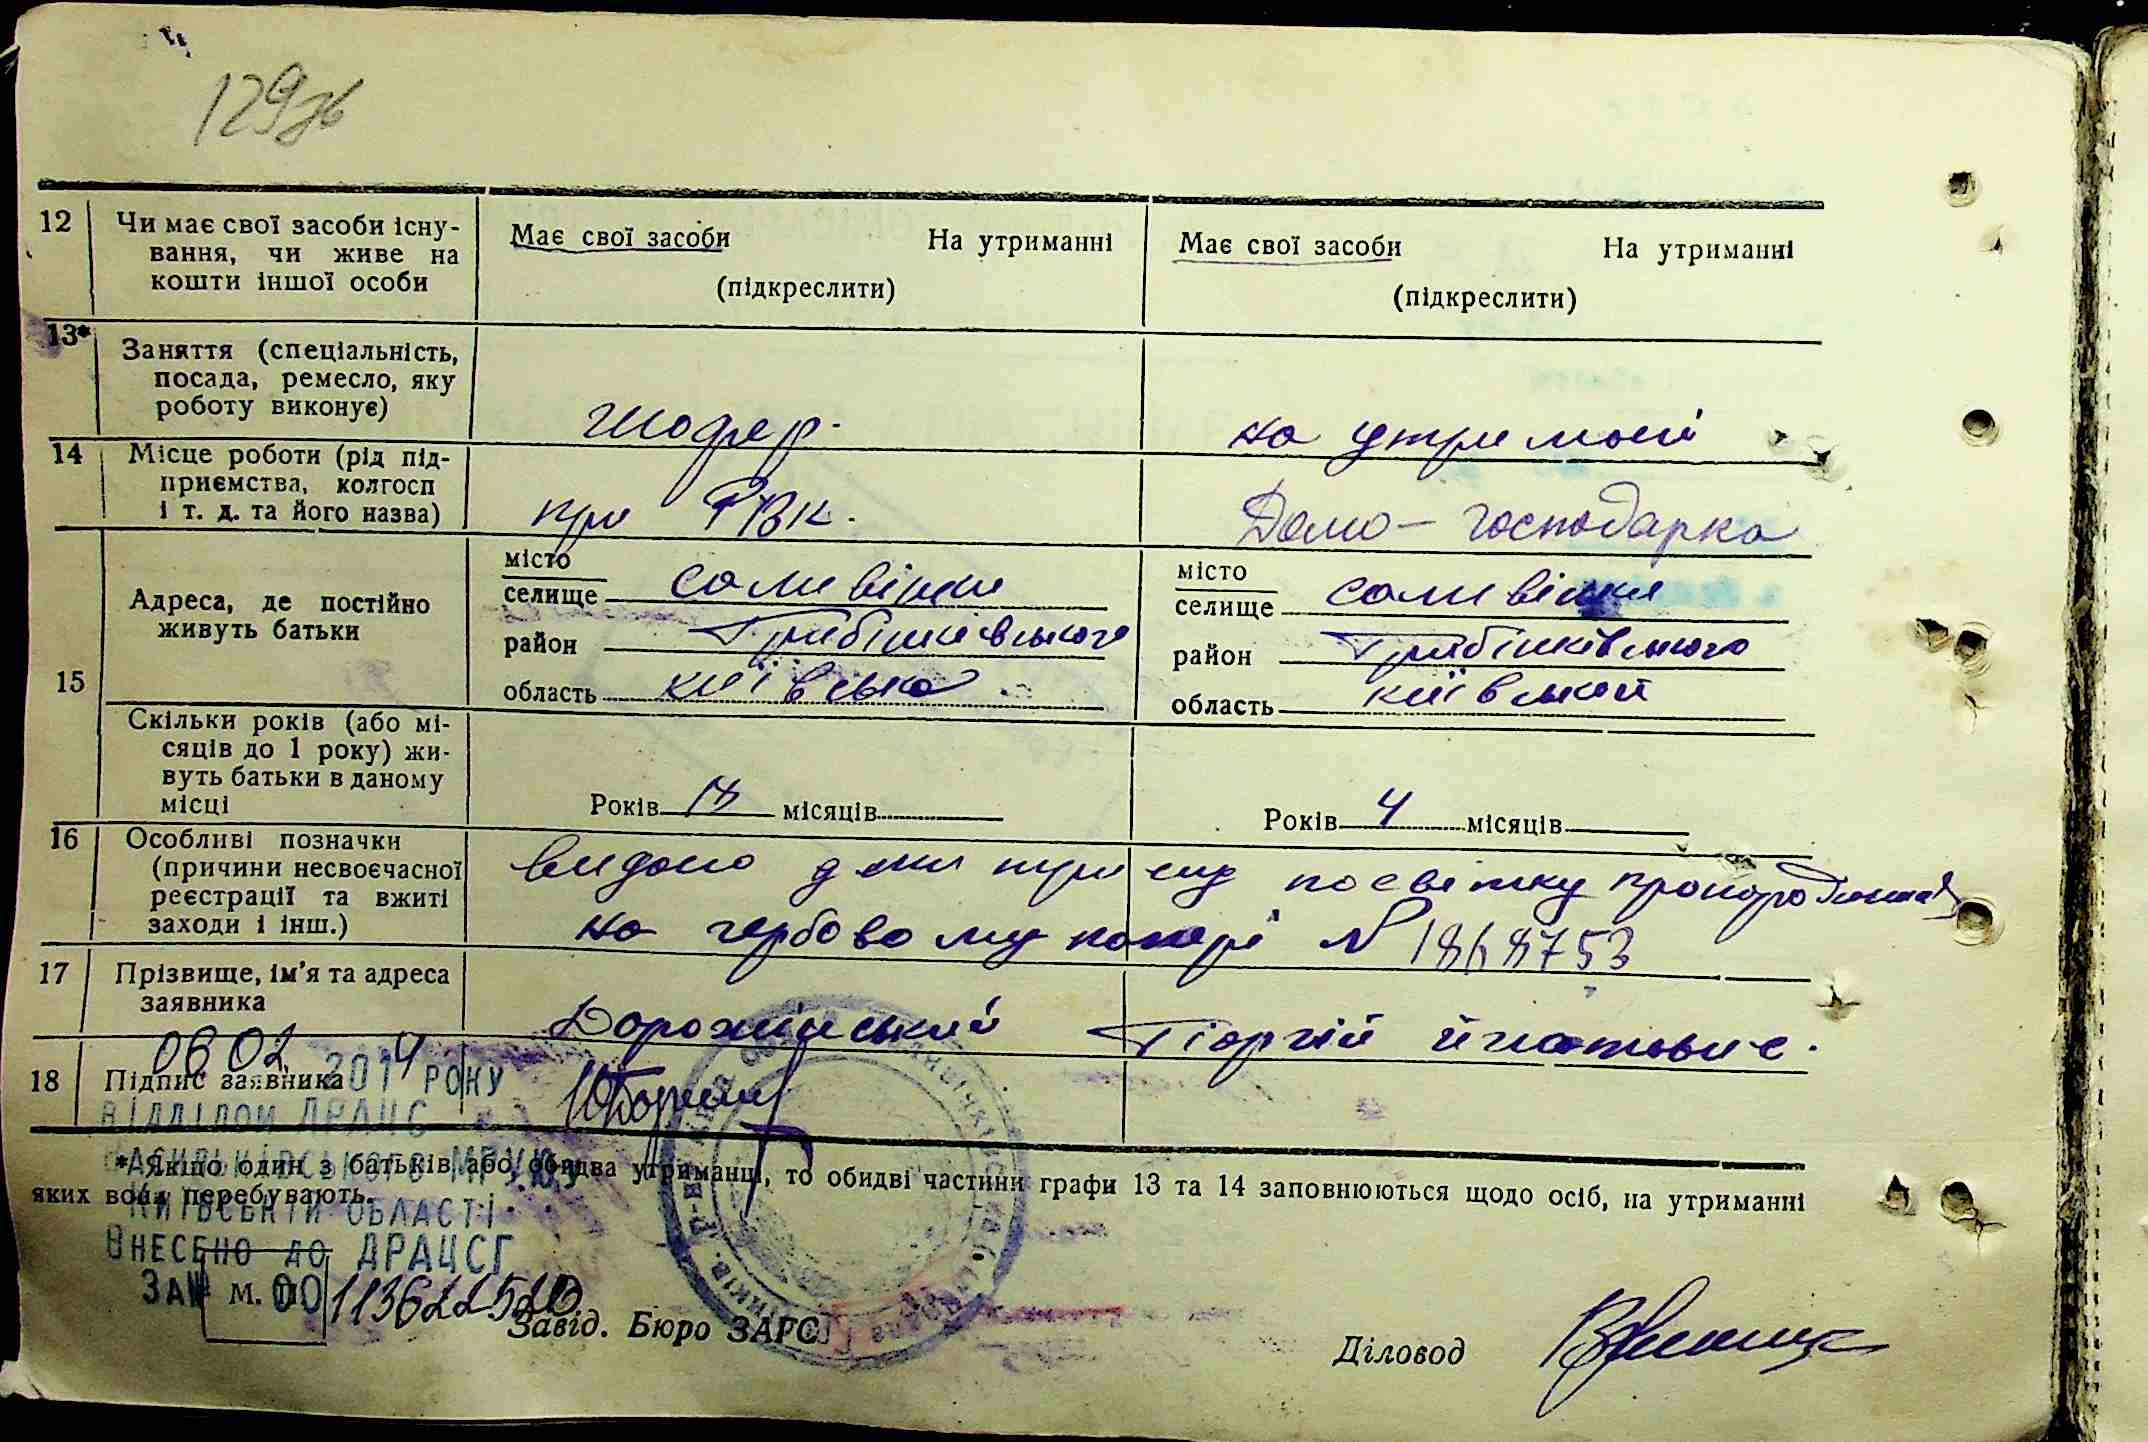 129зв
12 Чи має свої засоби існу-
вання, чи живе на
кошти іншої особи
Має свої засоби На утриманні
(підкреслити)
Має свої засоби На утриманні
(підкреслити)
13* Заняття (спеціальність,
посада, ремесло, яку
роботу виконує)
Шофер.
на утримані
14 Місце роботи (рід під-
приємства, колгосп
і т. д. та його назва)
при РВК.
Домо-господарка
15 Адреса, де постійно
живуть батьки
місто
селище Саливінки
район Гребінківського
область Київська
місто
селище Саливінки
район Гребінківського
область Київській
Скільки років (або мі-
сяців до 1 року) жи-
вуть батьки в даному
місці
Років 18 місяців
Років 4 місяців
16 Особливі позначки
(причини несвоєчасної
реєстрації та вжиті
заходи і інш.)
видано
на гербовому папері № 1868753
17 Прізвище, ім'я та адреса
заявника
Дорожінський Гіоргій Ігнатович.
18 Підпис заявника
06 02 2014 РОКУ
ВІДДІЛОМ ДРАЦС
ВАСИЛЬКІВСЬКОГО МРУЮ
КИЇВСЬКІЙ ОБЛАСТІ
ВНЕСЕНО ДО ДРАЦСГ
ЗА № 00113622520
* Якщо один з батьків, або обидва утриманці, то обидві частини графи 13 та 14 заповнюються щодо осіб, на утриманні
яких вони перебувають.
М. П.
Завід. Бюро ЗАГС
Діловод